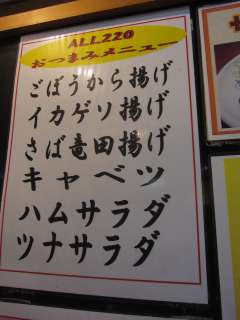 ALL220
おつまみメニュー
ごぼうから揚げ
イカゲソ揚げ
さば竜田揚げ
キャベツ
ハムサラダ
ツナサラダ